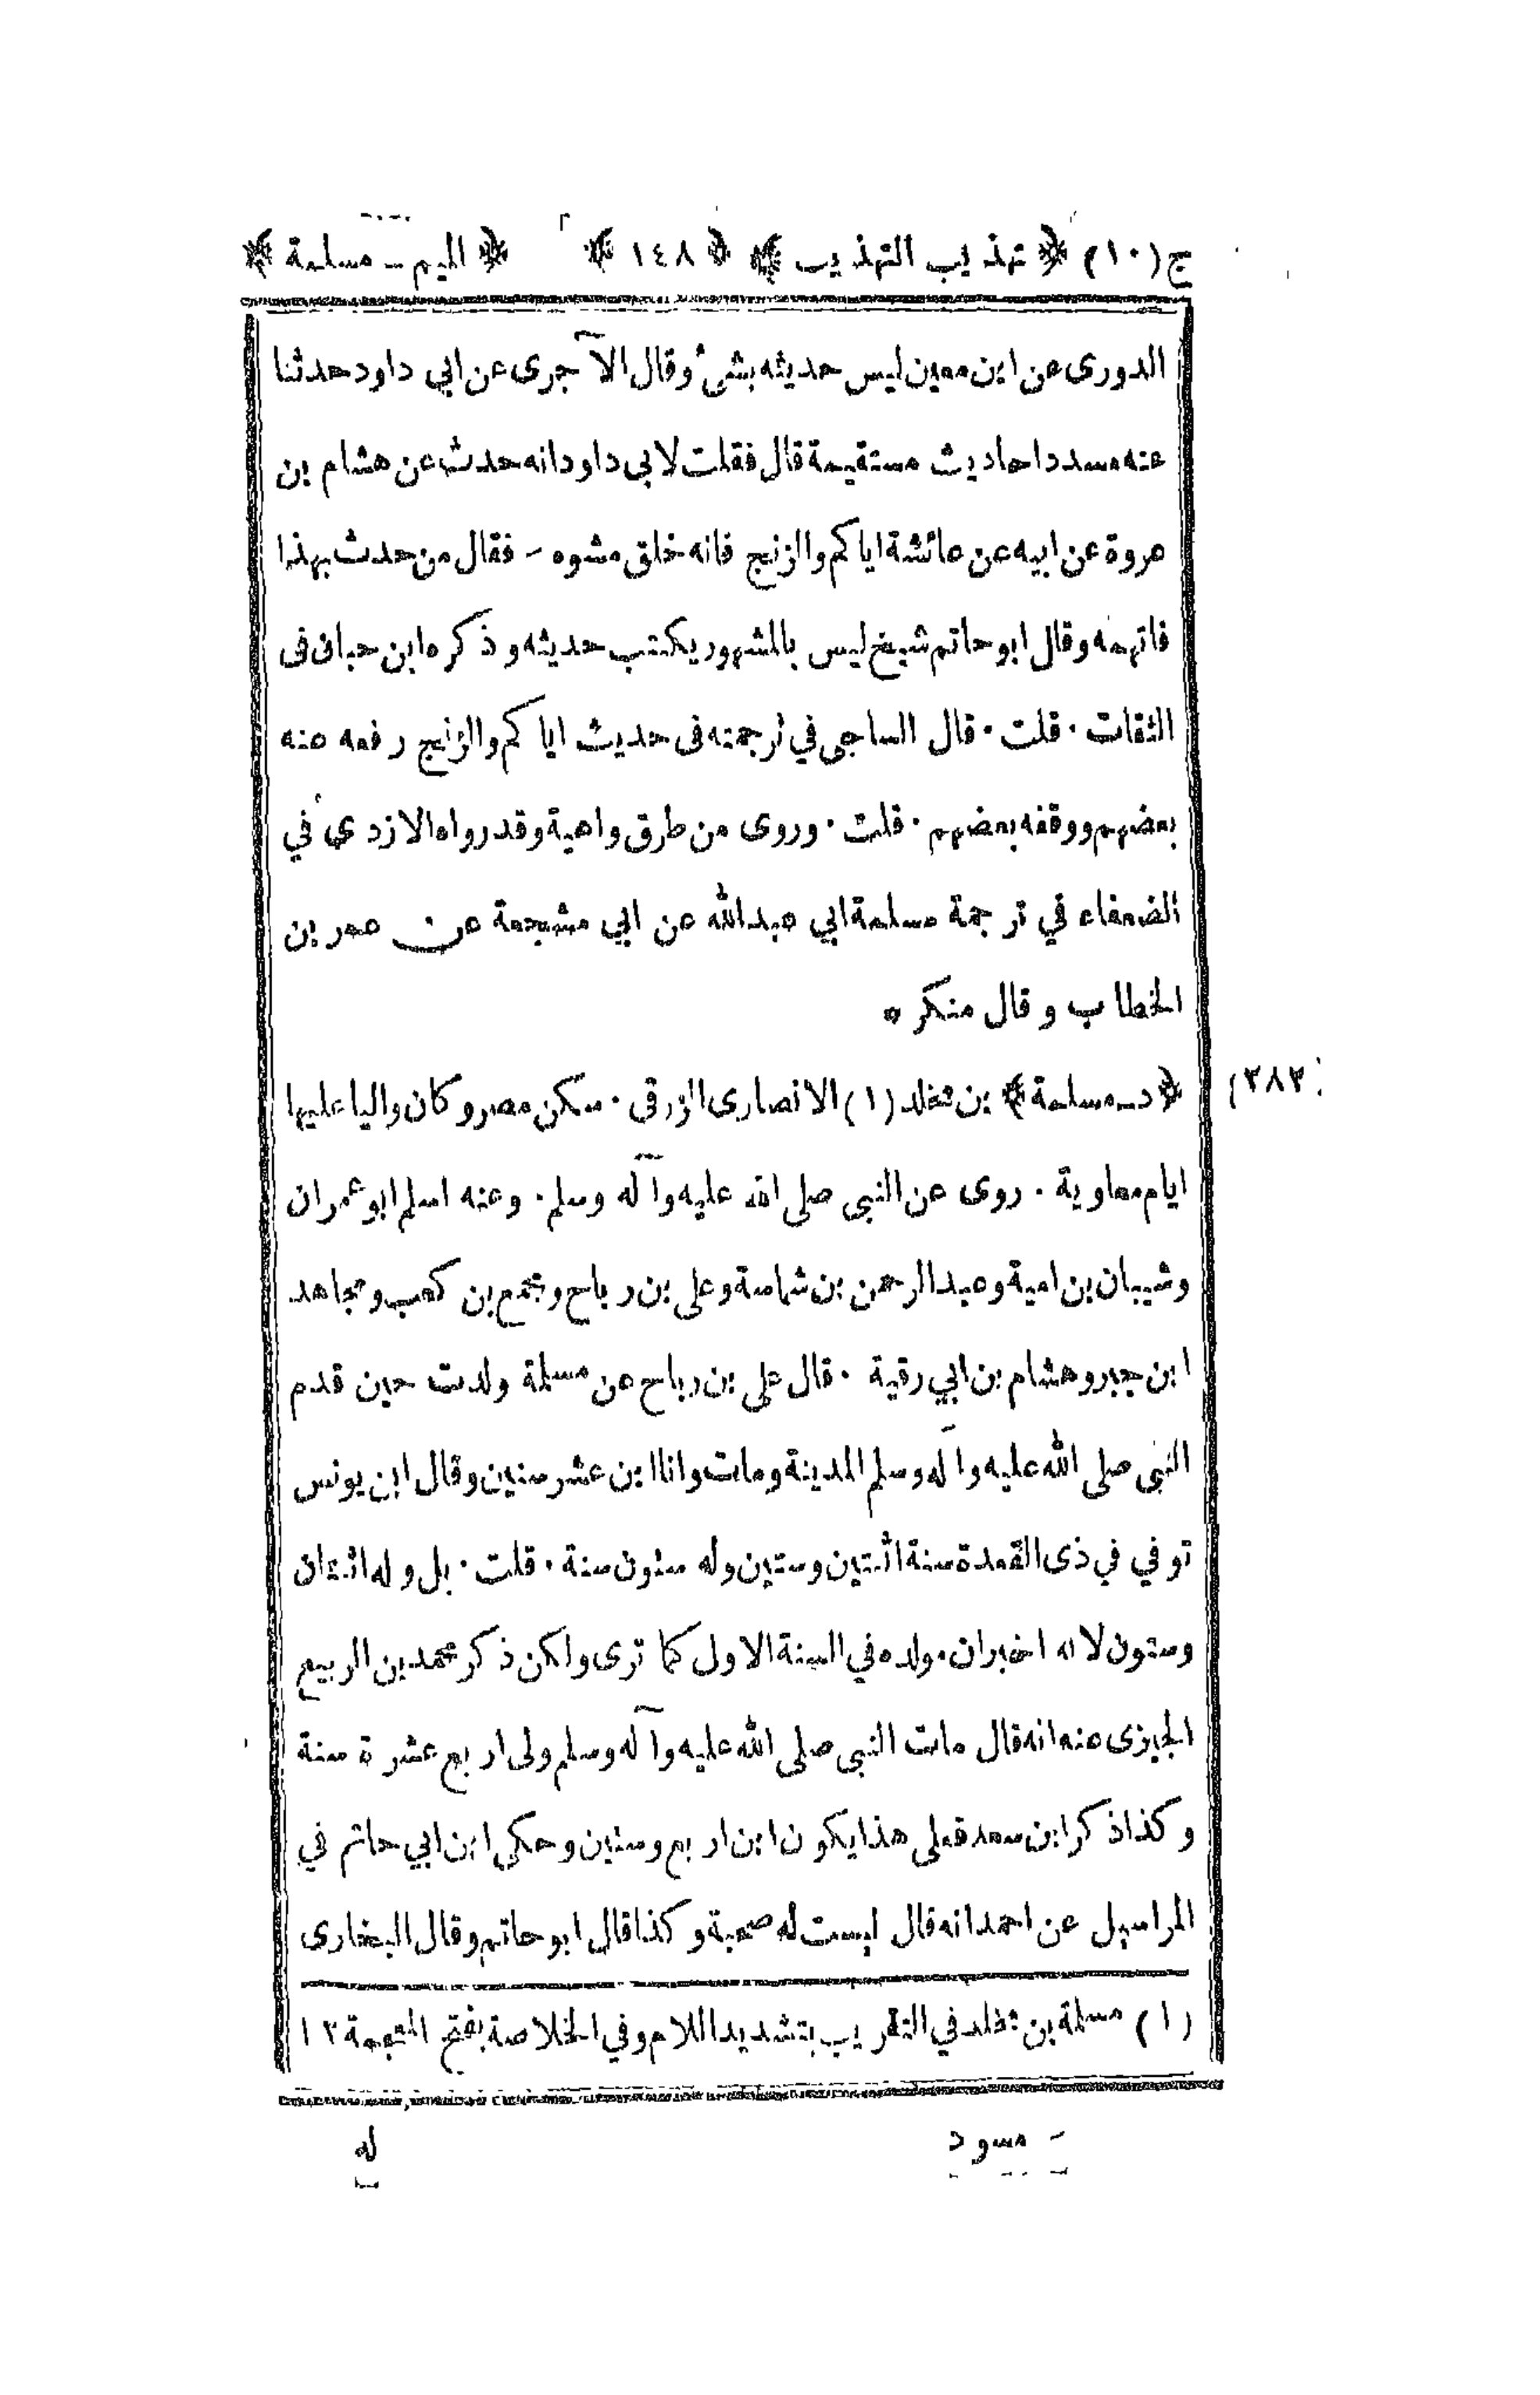 ج(١٠) ﴿ تهذيب التهذيب ﴾ ﴿ ١٤٨ ﴾ ﴿ الميم - مسلمة ﴾
الدورى عن ابن معين ليس حديثه بشئ وقال الآجرى عن ابي داود حدثنا
عنه مسدد احاديث مستقيمة قال فقلت لابى داود انه حدث عن هشام بن
عروة عن ابيه عن عائشة اياكم والزنج فانه خلق مشوه - فقال من حدث بهذا
فاتهمه وقال ابو حاتم شيخ ليس بالمشهور يكتب حديثه وذكره ابن حبان فى
الثقات · قلت · قال الساجى في ترجمته فى حديث اياكم والزنج رفعه عنه
بعضهم ووقفه بعضهم · قلت · وروى من طرق واهية وقد رواه الازدي في
الضعفاء في ترجمة مسلمة ابي عبد الله عن ابي مشجعة عن عمر بن
الخطاب وقال منكر *
﴿ د - مسلمة ﴾ بن مخلد (١) الانصارى الزرقى · سكن مصر وكان واليا عليها
(٢٨٢
ايام معاوية · روى عن النبى صلى الله عليه وآله وسلم · وعنه اسلم ابو عمران
وشيبان بن امية وعبد الرحمن بن شماسة وعلى بن رباح ومجمع بن كعب ومجاهد
ابن جبر وهشام بن ابي رقية · قال على بن رباح عن مسلمة ولدت حين قدم
النبى صلى الله عليه وآله وسلم المدينة ومات وانا ابن عشر سنين وقال ابن يونس
توفي في ذى القعدة سنة اثنتين وستين وله ستون سنة · قلت · بل وله اثنتان
وستون لانه اخبر ان مولده في السنة الاولى كما ترى ولكن ذكر محمد بن الربيع
الجيزى عنه انه قال مات النبى صلى الله عليه وآله وسلم ولى اربع عشرة سنة
وكذا ذكر ابن سعد فعلى هذا يكون ابن اربع وستين وحكى ابن ابي حاتم في
المراسيل عن احمد انه قال ليست له صحبة وكذا قال ابو حاتم وقال البخارى
(١) مسلمة بن مخلد في التقريب بتشديد اللام وفي الخلاصة بفتح المعجمة ١٢
- مسود
له